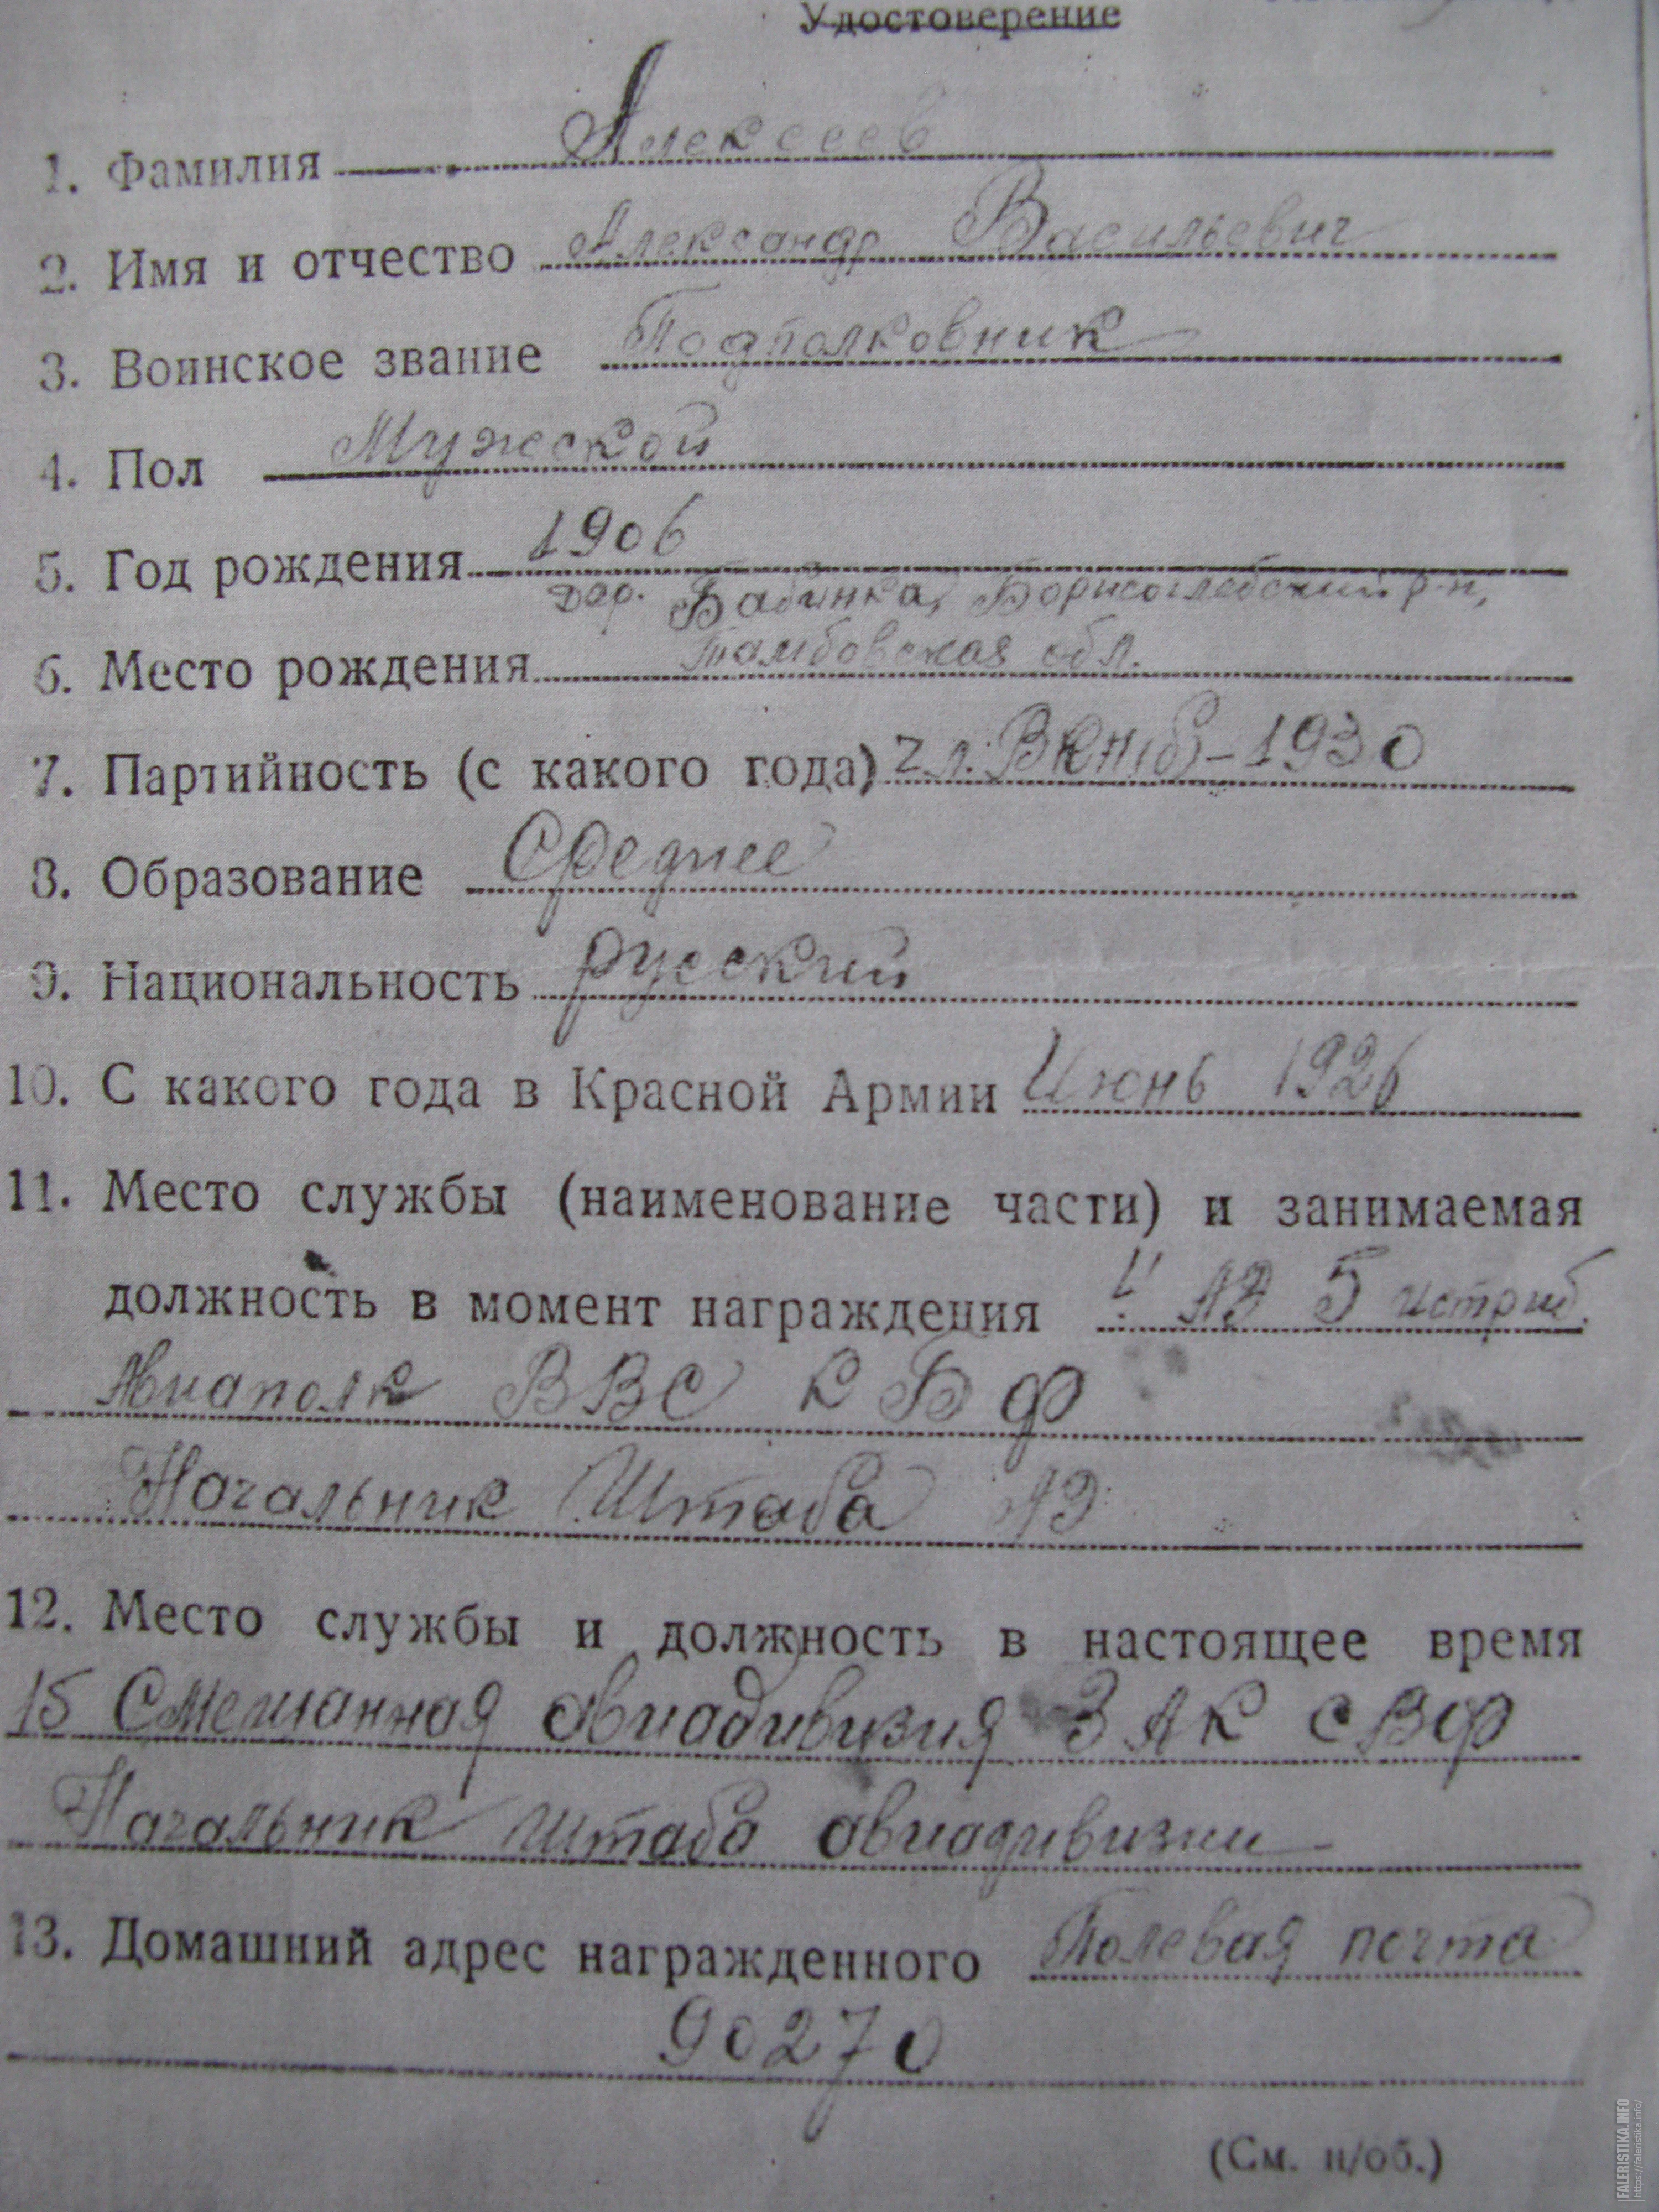 Удостоверение
1. Фамилия Алексеев
2. Имя и отчество Александр Васильевич
3. Воинское звание Подполковник
4. Пол Мужской
5. Год рождения 1906
дер. Бабинка, Борисоглебский р-н,
6. Место рождения Тамбовская обл.
7. Партийность (с какого года) ВКП(б) - 1930
8. Образование Среднее
9. Национальность русский
10. С какого года в Красной Армии Июнь 1926
11. Место службы (наименование части) и занимаемая
должность в момент награждения АЭ 5 истриб.
Авиаполк ВВС КБФ
Начальник Штаба АЭ
12. Место службы и должность в настоящее время
15 Смешанная авиадивизия ЗАК СВФ
Начальник штаба авиадивизии
13. Домашний адрес награжденного Полевая почта
90270
(См. н/об.)
FALERISTIKA.INFO
https://faleristika.info/